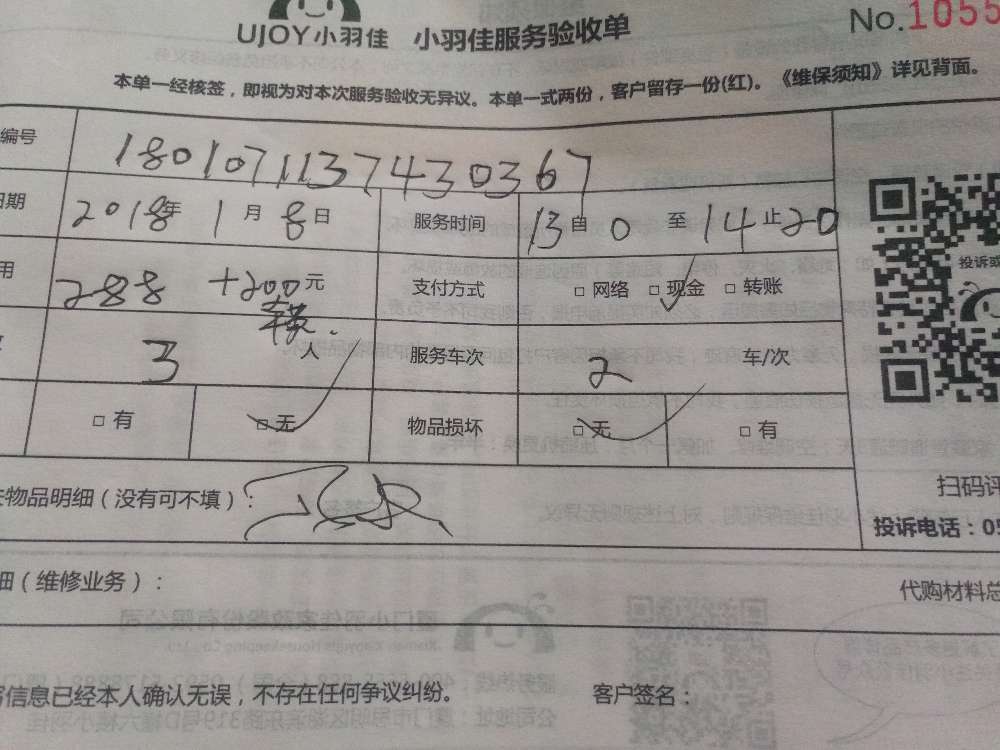 UJOY小羽佳 小羽佳服务验收单 No.1055
本单一经核签，即视为对本次服务验收无异议。本单一式两份，客户留存一份(红)。《维保须知》详见背面。
编号 180107113743 0367
日期 2018年 1月 8日 服务时间 13自0 至14止20
用 288 +200元 支付方式 □ 网络 □ 现金 □ 转账
3 人 服务车次 2 车/次
□ 有 □ 无 物品损坏 □ 无 □ 有
物品明细（没有可不填）：
扫码评
投诉或
投诉电话：05
细（维修业务）： 代购材料总
信息已经本人确认无误，不存在任何争议纠纷。 客户签名：